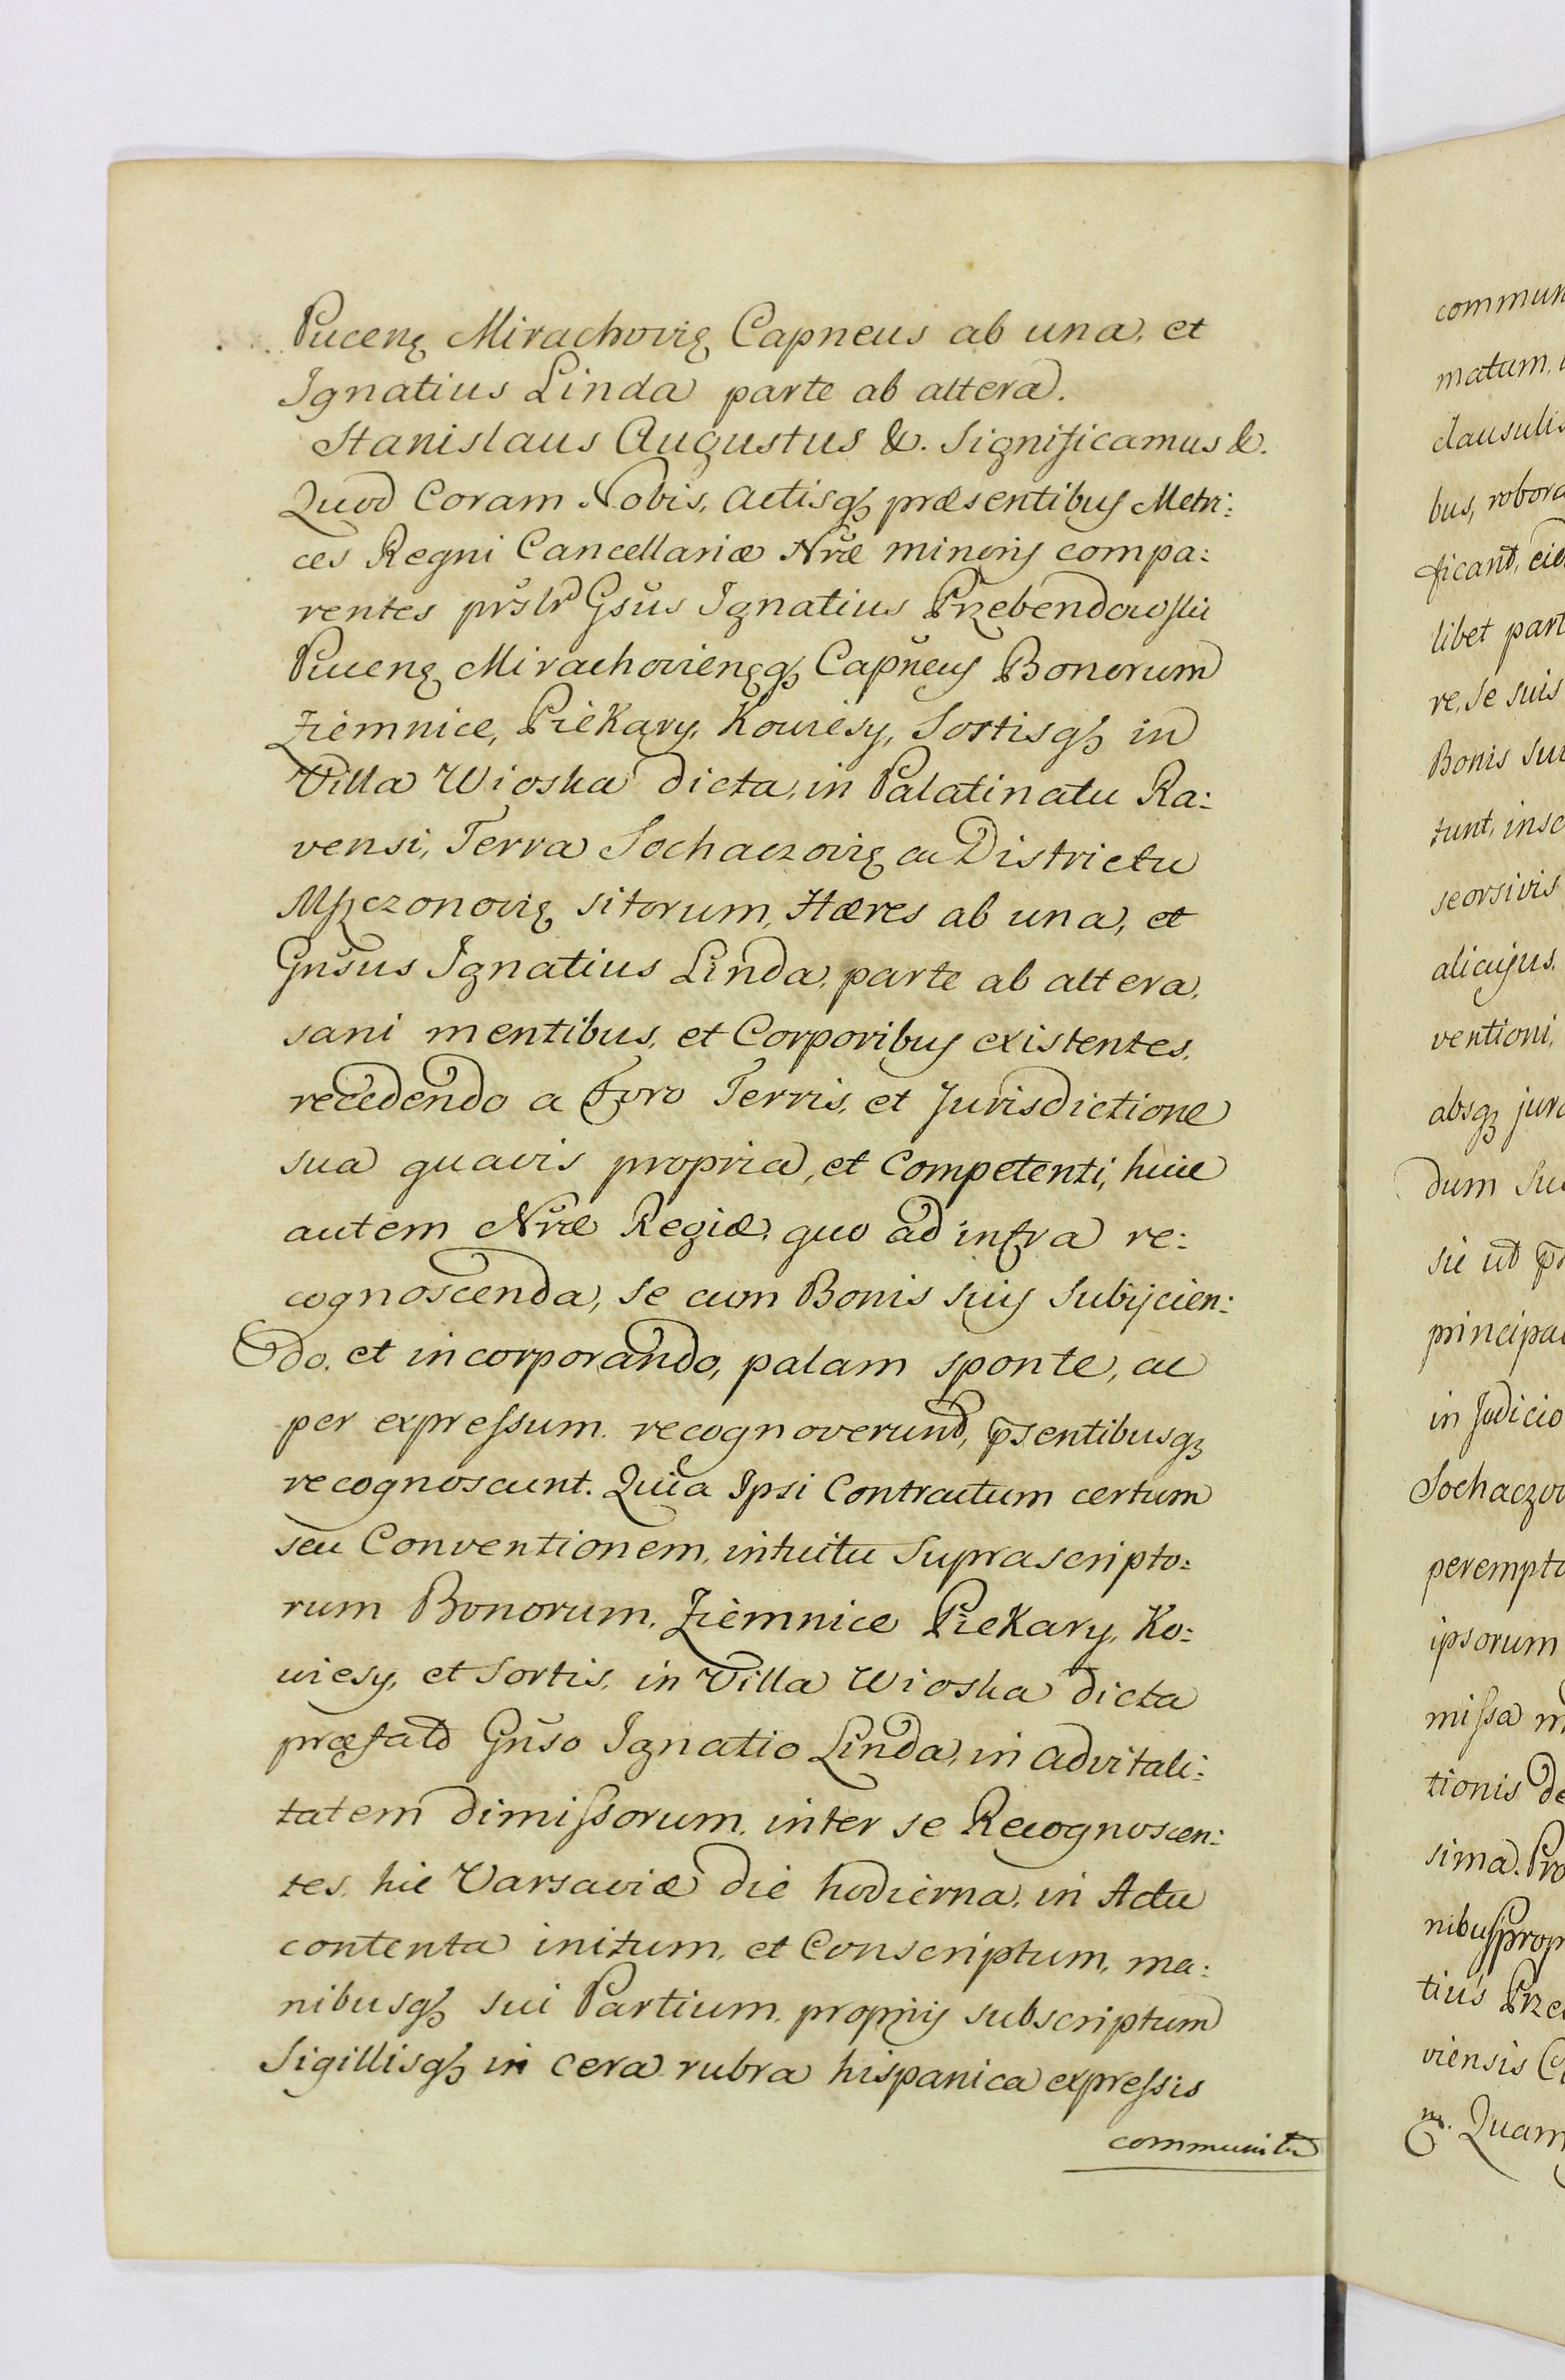 Pucenę Mirachovię Capneus ab una, et
Ignatius Linda parte ab altera.
Stanislaus Augustus &. Significamus &.
Quod Coram Nobis, Actisqꝫ præsentibus Metri:
ces Regni Cancellariæ Nr̃æ minoris compa:
rentes Gsũs Ignatius Przebendowski
Pucenę Mirachoviengqꝫ Capñeus Bonorum
Ziemnice, Piekary, Kowiesy, Sortisqꝫ in
Villa Wioska dicta, in Palatinatu Ra:
vensi, Terra Sochaczovię ac Districtu
Mszczonovię sitorum, Hæres ab una, et
Gnũsus Ignatius Linda, parte ab altera,
sani mentibus, et Corporibus existentes,
recedendo a Foro Terris, et Jurisdictione
sua quavis propria, et Competenti, huic
autem Nr̃æ Regiæ, quo ad infra re:
cognoscenda, se cum Bonis suis Subijcien:
do, et incorporando, palam sponte, ac
per expressum recognoverunt, p̃sentibusqꝫ
recognoscunt. Quia Ipsi Contractum certum
seu Conventionem, intuitu Suprascripto:
rum Bonorum, Ziemnice Piekary, Ko:
wiesy, et Sortis, in Villa Wioska dicta
præfato Gnũso Ignatio Linda, in advitali:
tatem dimissorum, inter se Recognoscen:
tes, hic Varsaviæ die hodierna, in Actu
contenta initum, et Conscriptum, ma:
nibusqꝫ sui Partium, proprijs subscriptum
Sigillisqꝫ in cera rubra hispanica expressis
communitu
commun
matum,
clausulis
bus, robora
ficant,
libet part
re, se suis
Bonis sui
tunt, insc
seorsivis
alicujus,
ventioni,
absqꝫ jura
dum
sic ut
principal
in Judicio
Sochaczov
perempto
ipsorum
missa
tionis de
sima. Pro
nibus prop
tius Prze
viensis
Quam